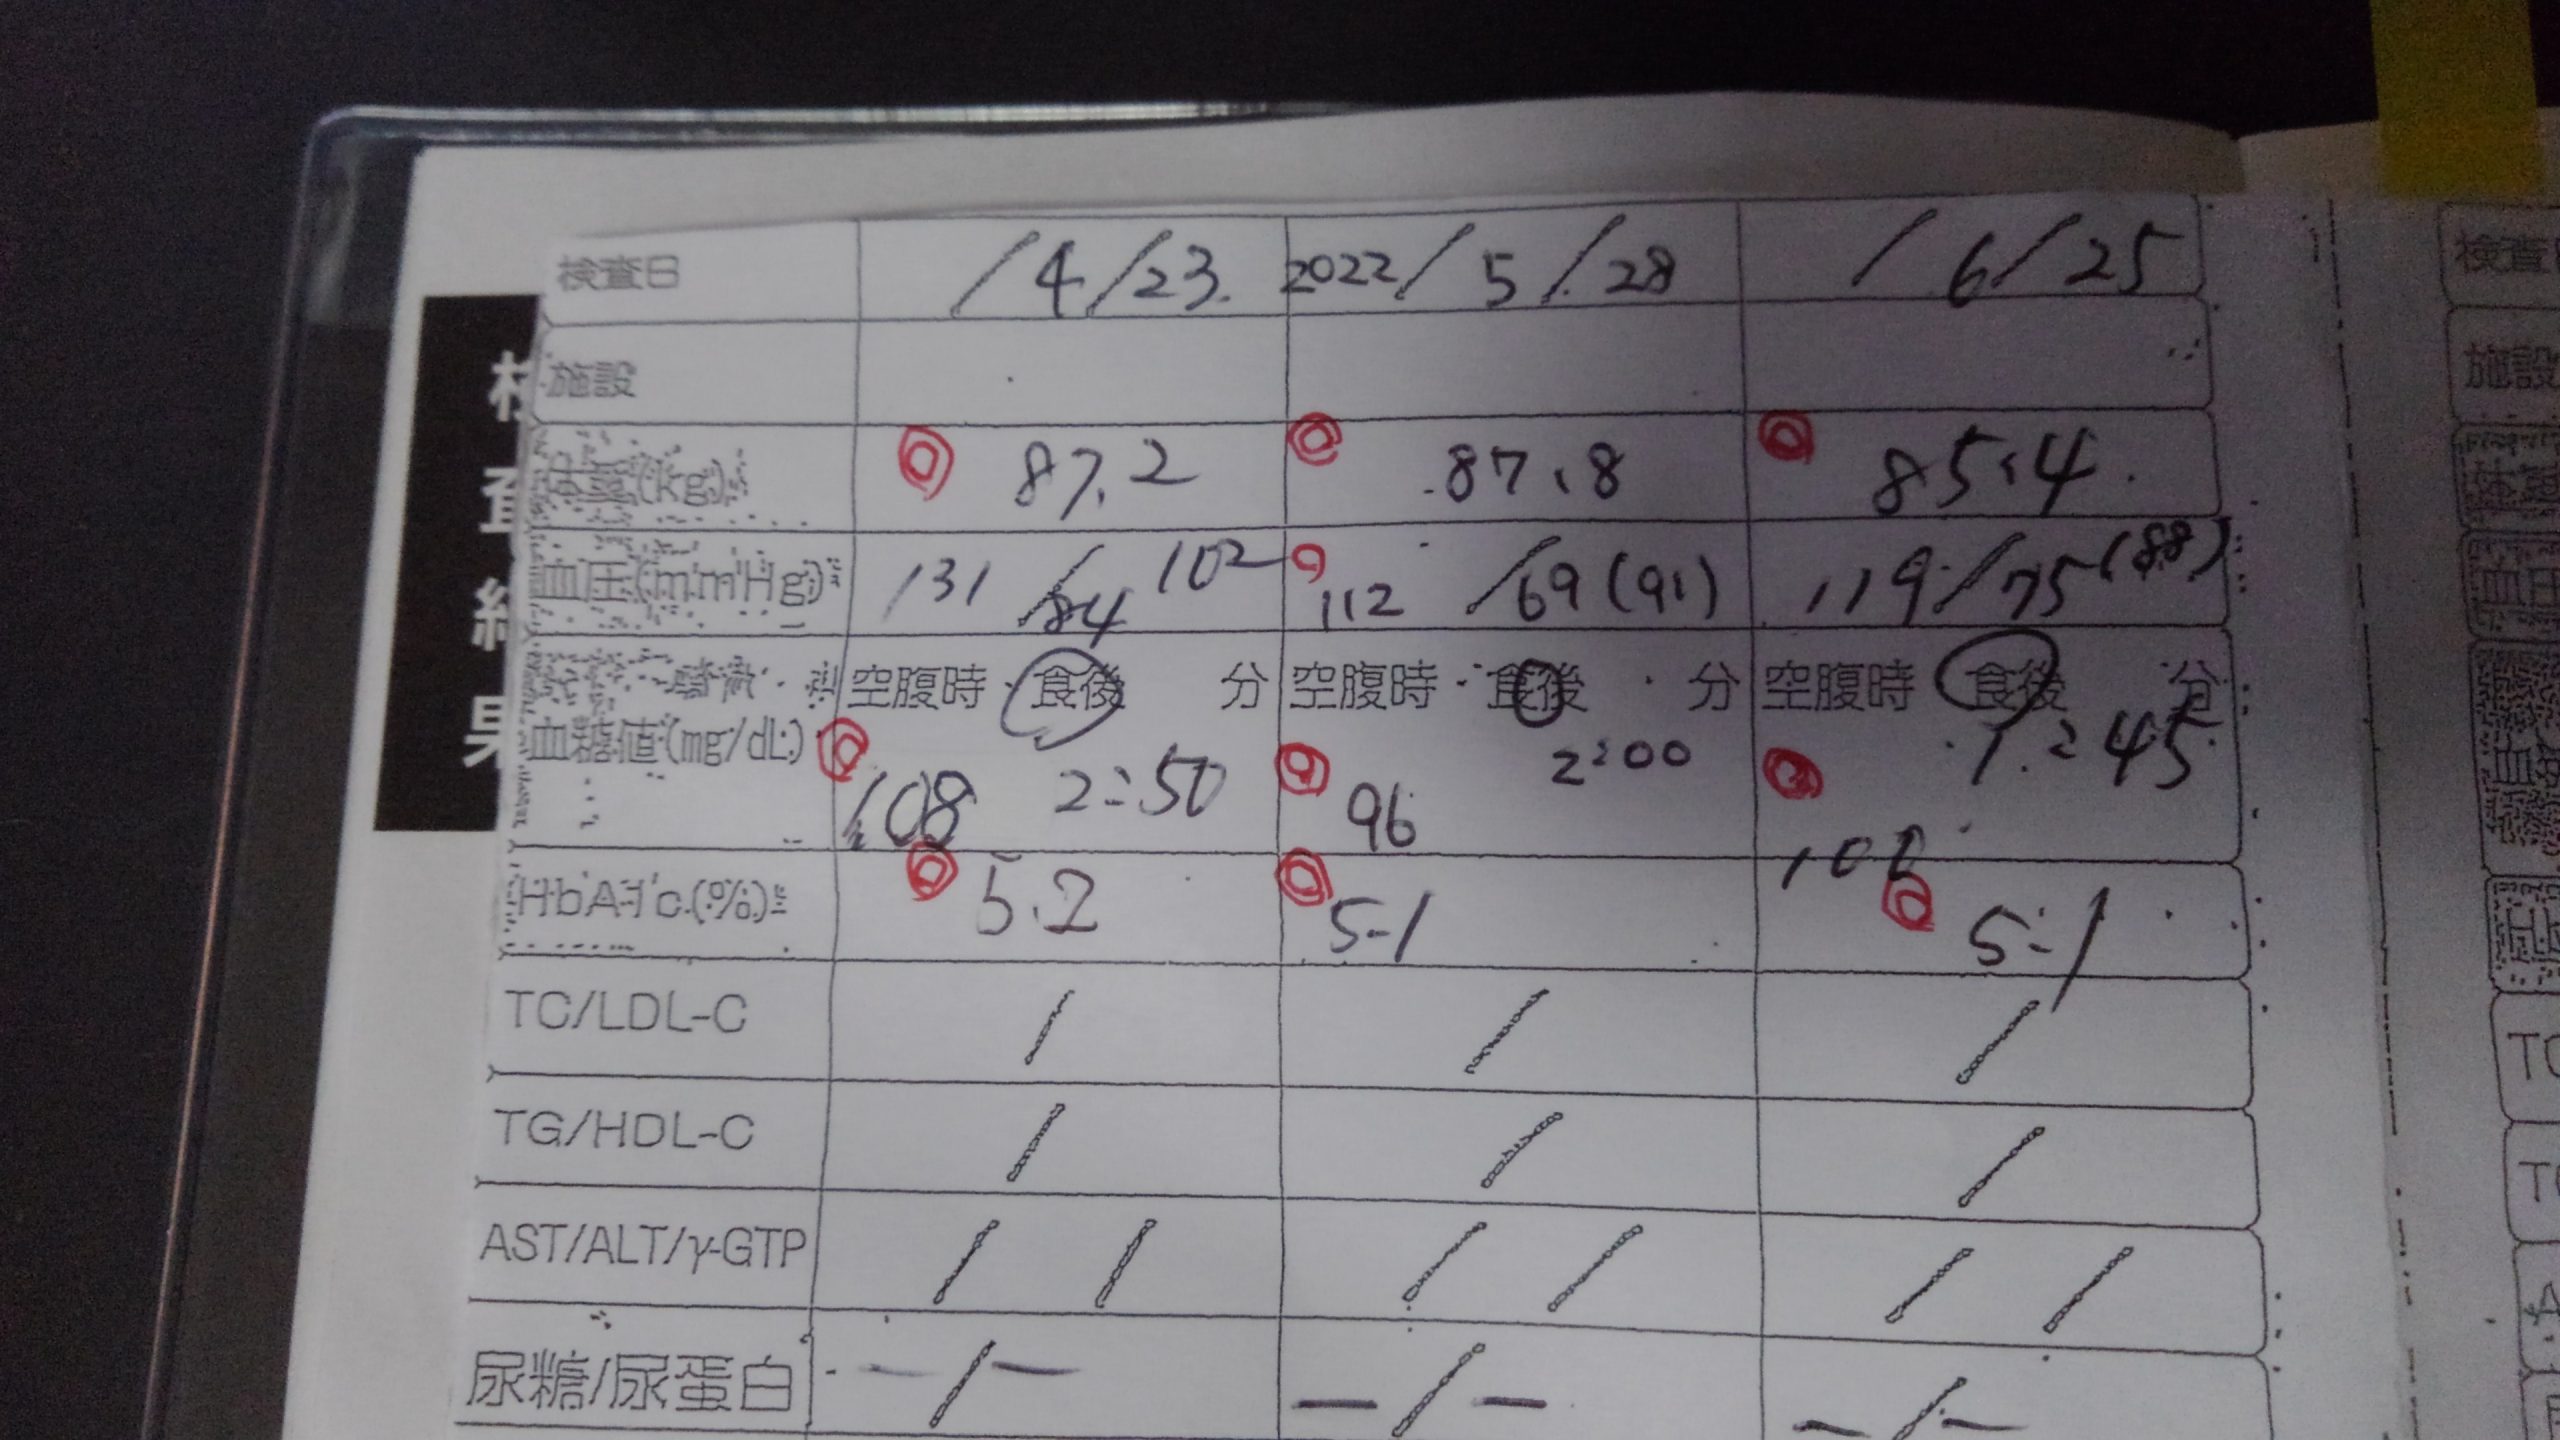 検査日 /4/23. 2022/5/28 /6/25
施設
体重(kg) 87.2 87.8 85.4
血圧(mmHg) 131/84 102 112/69(91) 119/75(88)
空腹時・食後 分 空腹時・食後 分 空腹時 食後 分
血糖値(mg/dL) 108 2:50 96 2:00 1:45
HbA1c(%) 5.2 5.1 5.1
TC/LDL-C / / /
TG/HDL-C / / /
AST/ALT/γ-GTP / / / / / /
尿糖/尿蛋白 - / - - / - - / -
検査
結果
検査
施設